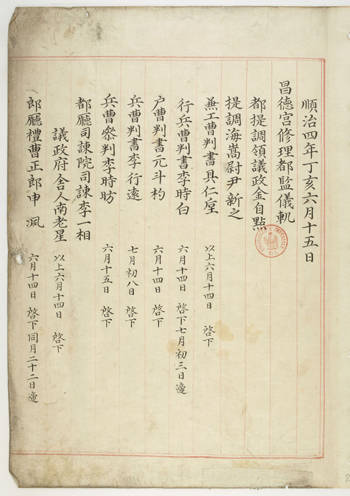 順治四年丁亥六月十五日
昌德宮修理都監儀軌
都提調領議政金自點
提調海嵩尉尹新之
兼工曹判書具仁垕 以上六月十四日 啓下
行兵曹判書李時白 六月十四日 啓下七月初三日遞
戶曹判書元斗杓 六月十四日 啓下
兵曹判書李行遠 七月初八日 啓下
兵曹參判李時昉 六月十五日 啓下
都廳司諫院司諫李一相
議政府舍人南老星 以上六月十四日 啓下
郎廳禮曹正郎申 六月十四日 啓下同月二十二日遞